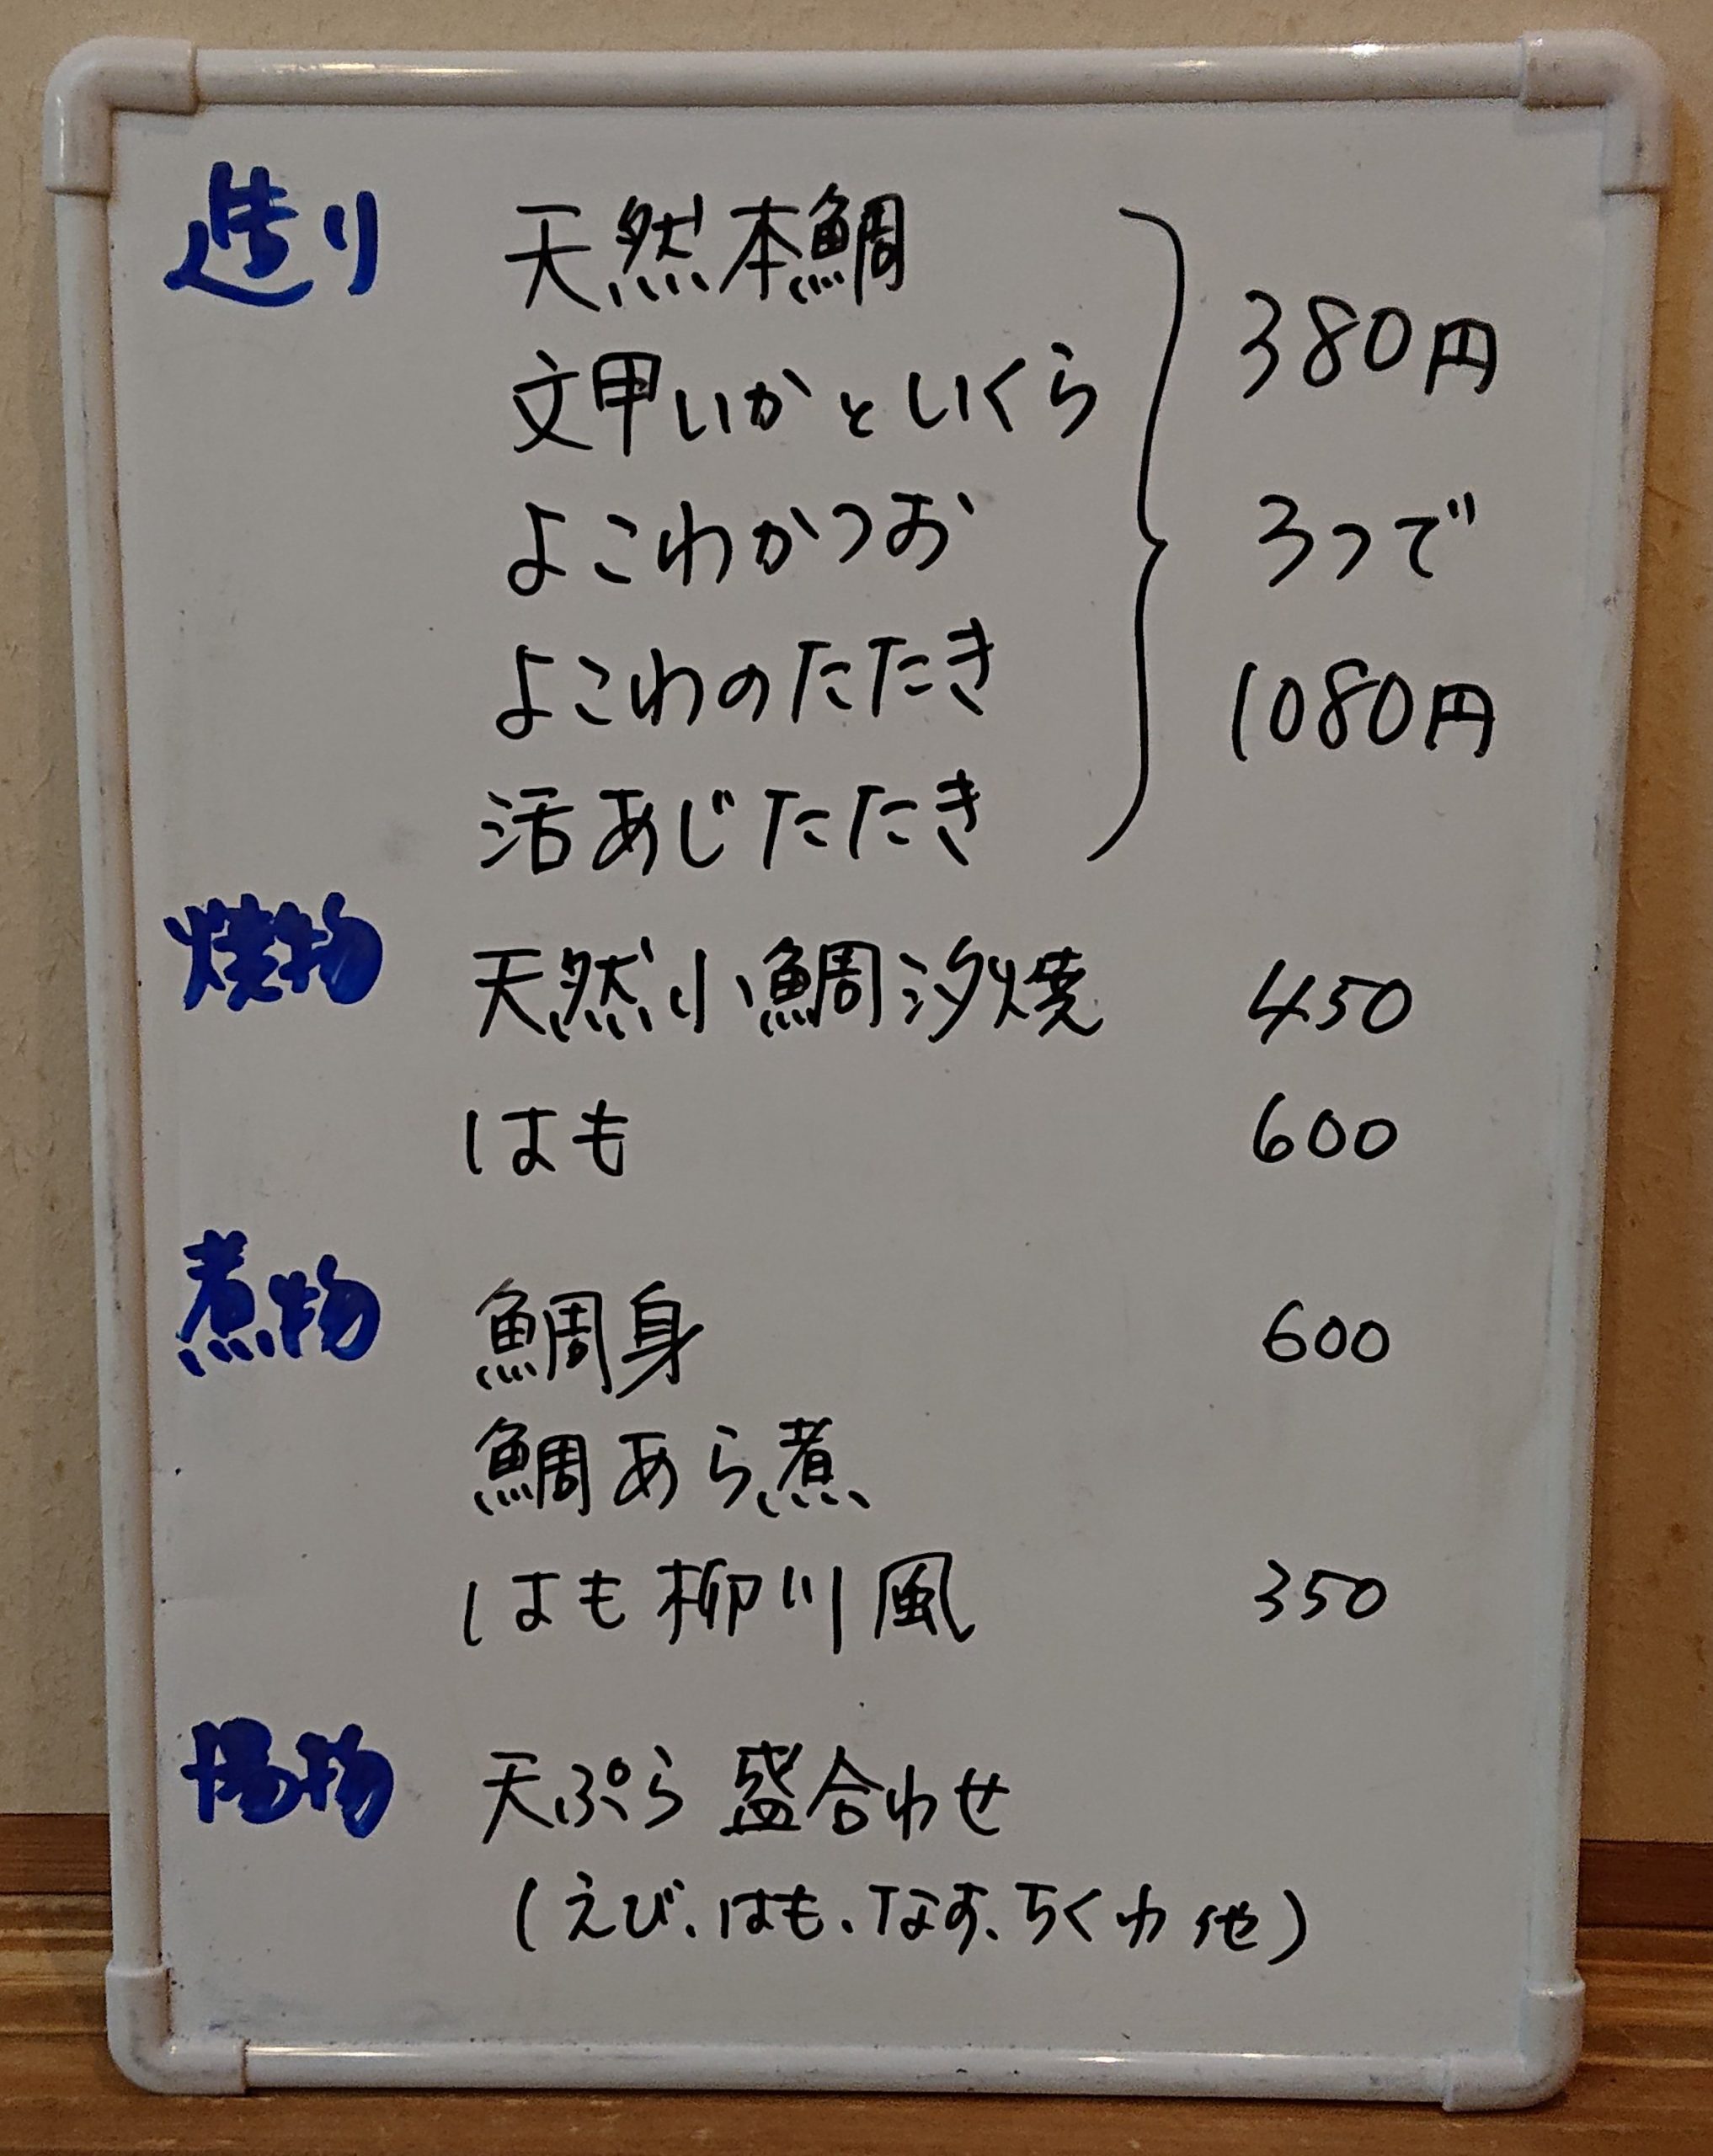 造り 天然本鯛
文甲いかといくら
よこわかつお
よこわのたたき
活あじたたき
380円
3つで
1080円
焼物 天然小鯛汐焼 450
はも 600
煮物 鯛身 600
鯛あら煮
はも柳川風 350
揚物 天ぷら盛合わせ
(えび、はも、なす、ちくわ他)